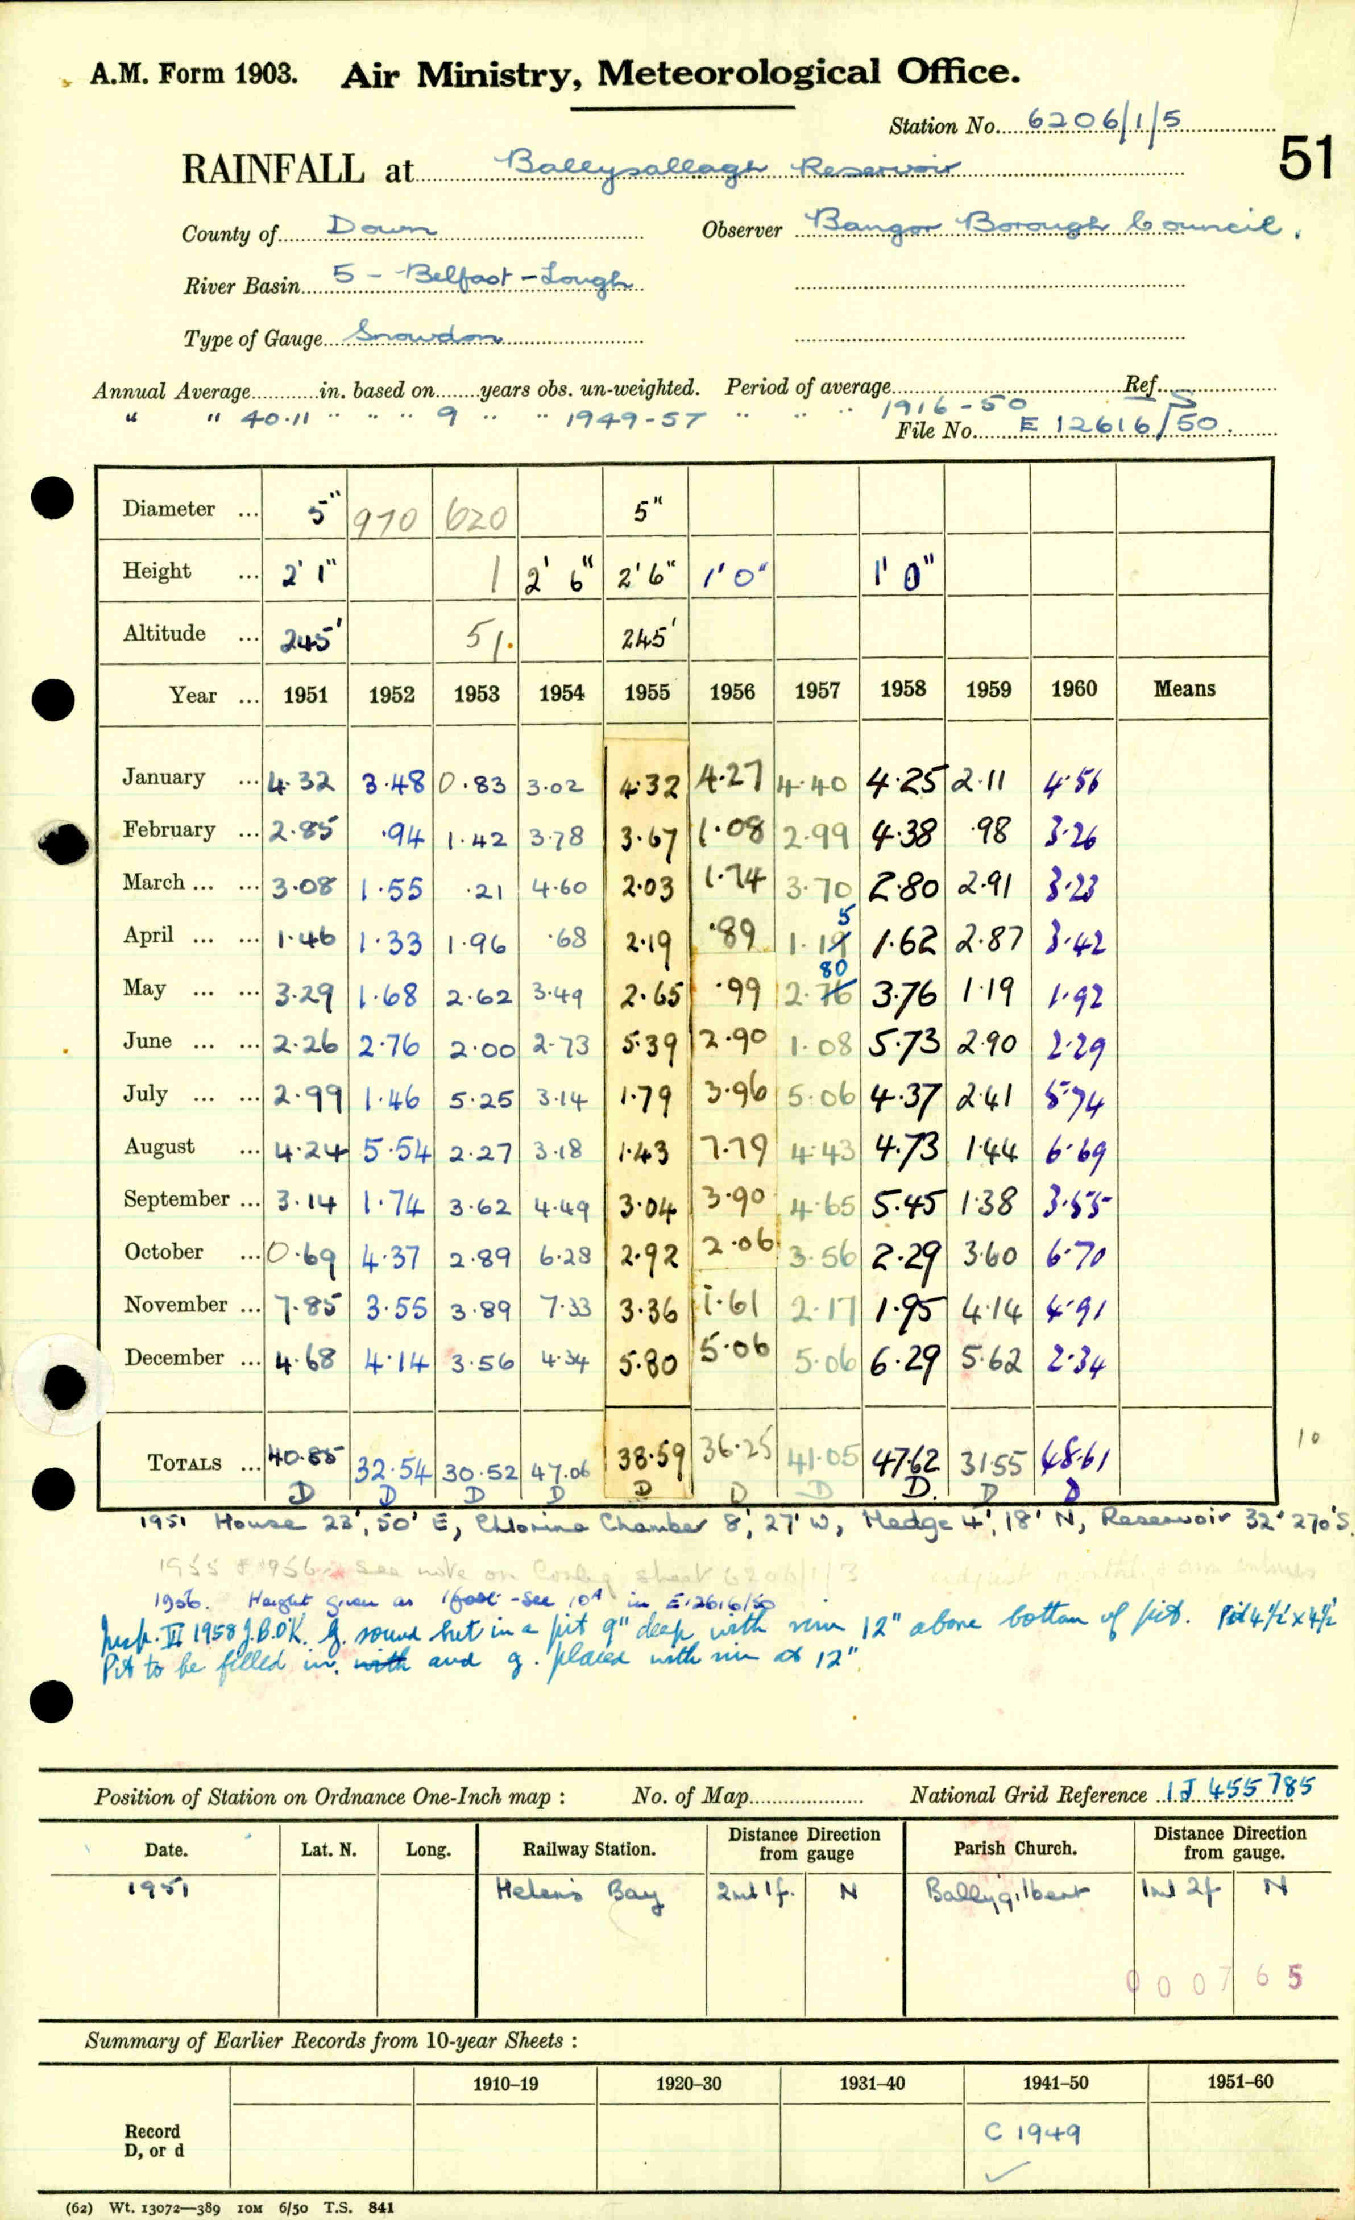 A.M. Form 1903. Air Ministry, Meteorological Office.
Station No. 6206/1/5
51
RAINFALL at Ballysallagh Reservoir
County of Down Observer Bangor Borough Council.
River Basin 5 - Belfast - Lough
Type of Gauge Snowdon
Annual Average in. based on years obs. un-weighted. Period of average Ref. S
" " 40.11 " " " 9 " " 1949-57 " " " 1916-50
File No. E 12616/50
Diameter ... 5" 970 620 5"
Height ... 2' 1" 1 2' 6" 2' 6" 1' 0" 1' 0"
Altitude ... 245' 51. 245'
Year ... 1951 1952 1953 1954 1955 1956 1957 1958 1959 1960 Means
January ... 4.32 3.48 0.83 3.02 4.32 4.27 4.40 4.25 2.11 4.56
February ... 2.85 .94 1.42 3.78 3.67 1.08 2.99 4.38 .98 3.26
March ... ... 3.08 1.55 .21 4.60 2.03 1.74 3.70 2.80 2.91 3.23
April ... ... 1.46 1.33 1.96 .68 2.19 .89 1.19 5 1.62 2.87 3.42
May ... ... 3.29 1.68 2.62 3.49 2.65 .99 2.76 80 3.76 1.19 1.92
June ... ... 2.26 2.76 2.00 2.73 5.39 2.90 1.08 5.73 2.90 2.29
July ... ... 2.99 1.46 5.25 3.14 1.79 3.96 5.06 4.37 2.41 5.74
August ... 4.24 5.54 2.27 3.18 1.43 7.79 4.43 4.73 1.44 6.69
September ... 3.14 1.74 3.62 4.49 3.04 3.90 4.65 5.45 1.38 3.55
October ... 0.69 4.37 2.89 6.28 2.92 2.06 3.56 2.29 3.60 6.70
November ... 7.85 3.55 3.89 7.33 3.36 1.61 2.17 1.95 4.14 4.91
December ... 4.68 4.14 3.56 4.34 5.80 5.06 5.06 6.29 5.62 2.34
10
TOTALS ... 40.85 32.54 30.52 47.06 38.59 36.25 41.05 47.62 31.55 48.61
D D D D D D D D. D D
1951 House 23', 50' E, Chlorine Chamber 8', 27' W, Hedge 4', 18' N, Reservoir 32' 270' S.
1955 & 1956 see note on sheet 6206/1/3
1956. Height given as 1 foot - see 10A in E12616/50
Insp. III 1958 J.B.O'K. G. sound but in a pit 9" deep with rim 12" above bottom of pit. Pit 4½' x 4½'
Pit to be filled in, with and g. placed with rim at 12"
Position of Station on Ordnance One-Inch map : No. of Map National Grid Reference IJ 455785
Date. Lat. N. Long. Railway Station. Distance Direction from gauge Parish Church. Distance Direction from gauge.
1951 Helen's Bay 2ml 1f. N Ballygilbert 1ml 2f N
000765
Summary of Earlier Records from 10-year Sheets :
1910–19 1920–30 1931–40 1941–50 1951–60
Record
D, or d
C 1949
(62) Wt. 13072—389 10M 6/50 T.S. 841